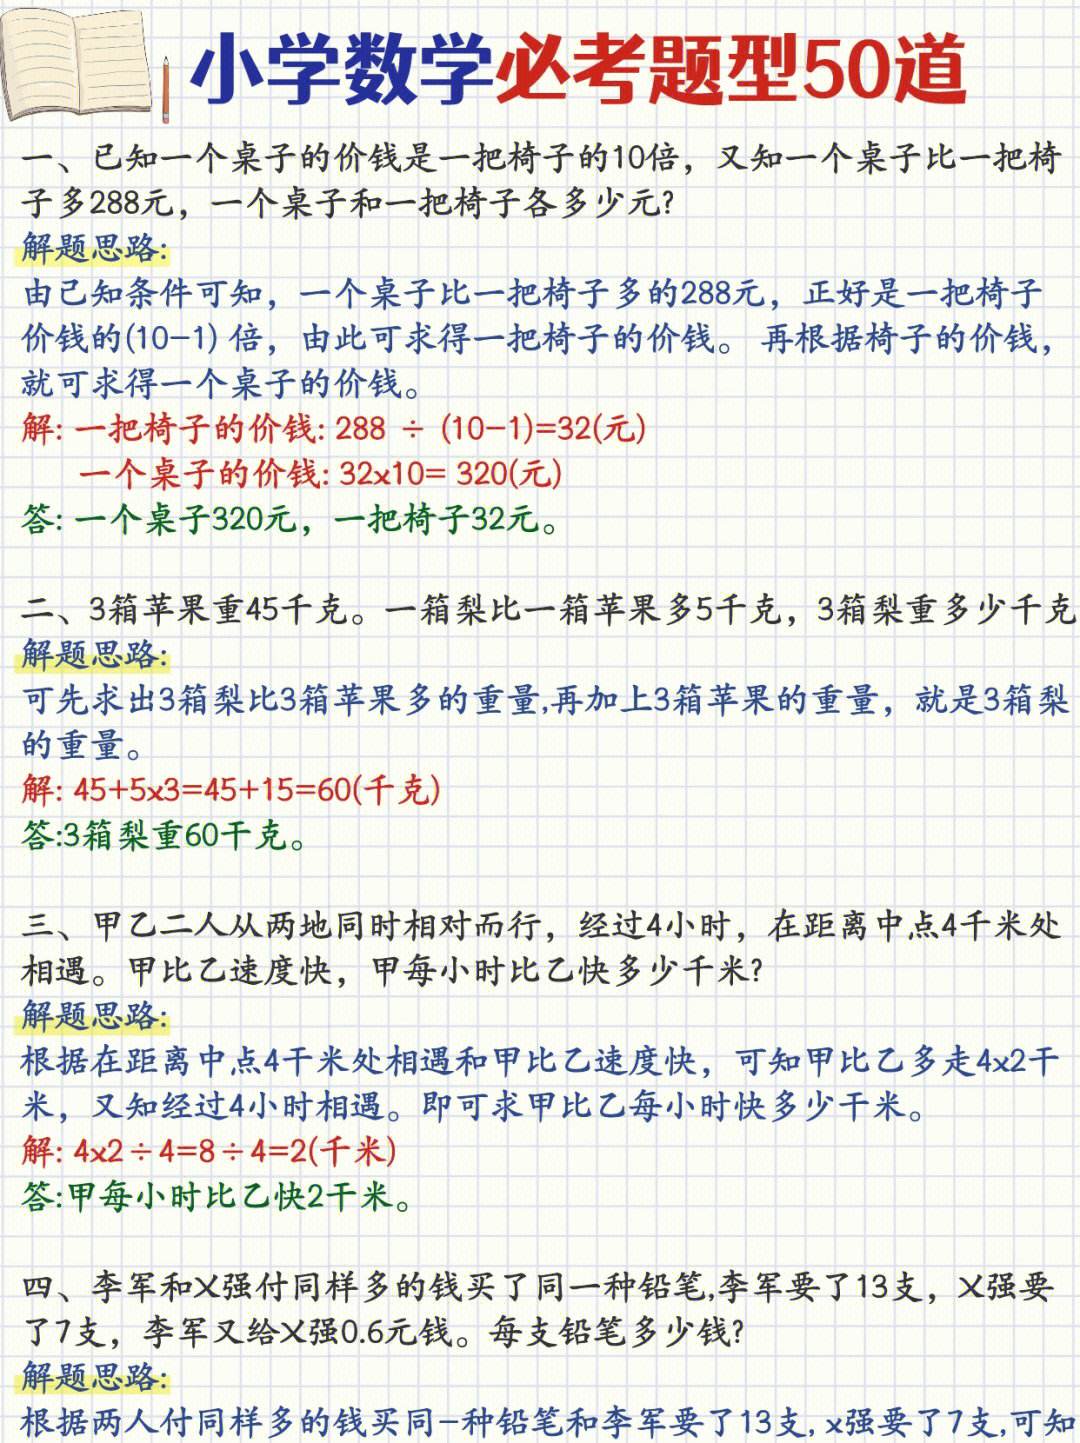 小学数学必考题型50道
一、已知一个桌子的价钱是一把椅子的10倍，又知一个桌子比一把椅
子多288元，一个桌子和一把椅子各多少元?
解题思路:
由己知条件可知，一个桌子比一把椅子多的288元，正好是一把椅子
价钱的(10-1) 倍，由此可求得一把椅子的价钱。 再根据椅子的价钱，
就可求得一个桌子的价钱。
解: 一把椅子的价钱: 288 ÷ (10-1)=32(元)
一个桌子的价钱: 32x10= 320(元)
答: 一个桌子320元，一把椅子32元。
二、3箱苹果重45千克。一箱梨比一箱苹果多5千克，3箱梨重多少千克
解题思路:
可先求出3箱梨比3箱苹果多的重量,再加上3箱苹果的重量，就是3箱梨
的重量。
解: 45+5x3=45+15=60(千克)
答:3箱梨重60干克。
三、甲乙二人从两地同时相对而行，经过4小时，在距离中点4千米处
相遇。甲比乙速度快，甲每小时比乙快多少千米?
解题思路:
根据在距离中点4干米处相遇和甲比乙速度快，可知甲比乙多走4x2干
米，又知经过4小时相遇。即可求甲比乙每小时快多少干米。
解: 4x2÷4=8÷4=2(千米)
答:甲每小时比乙快2干米。
四、李军和乂强付同样多的钱买了同一种铅笔,李军要了13支，乂强要
了7支，李军又给乂强0.6元钱。每支铅笔多少钱?
解题思路:
根据两人付同样多的钱买同-种铅笔和李军要了13支, x强要了7支,可知